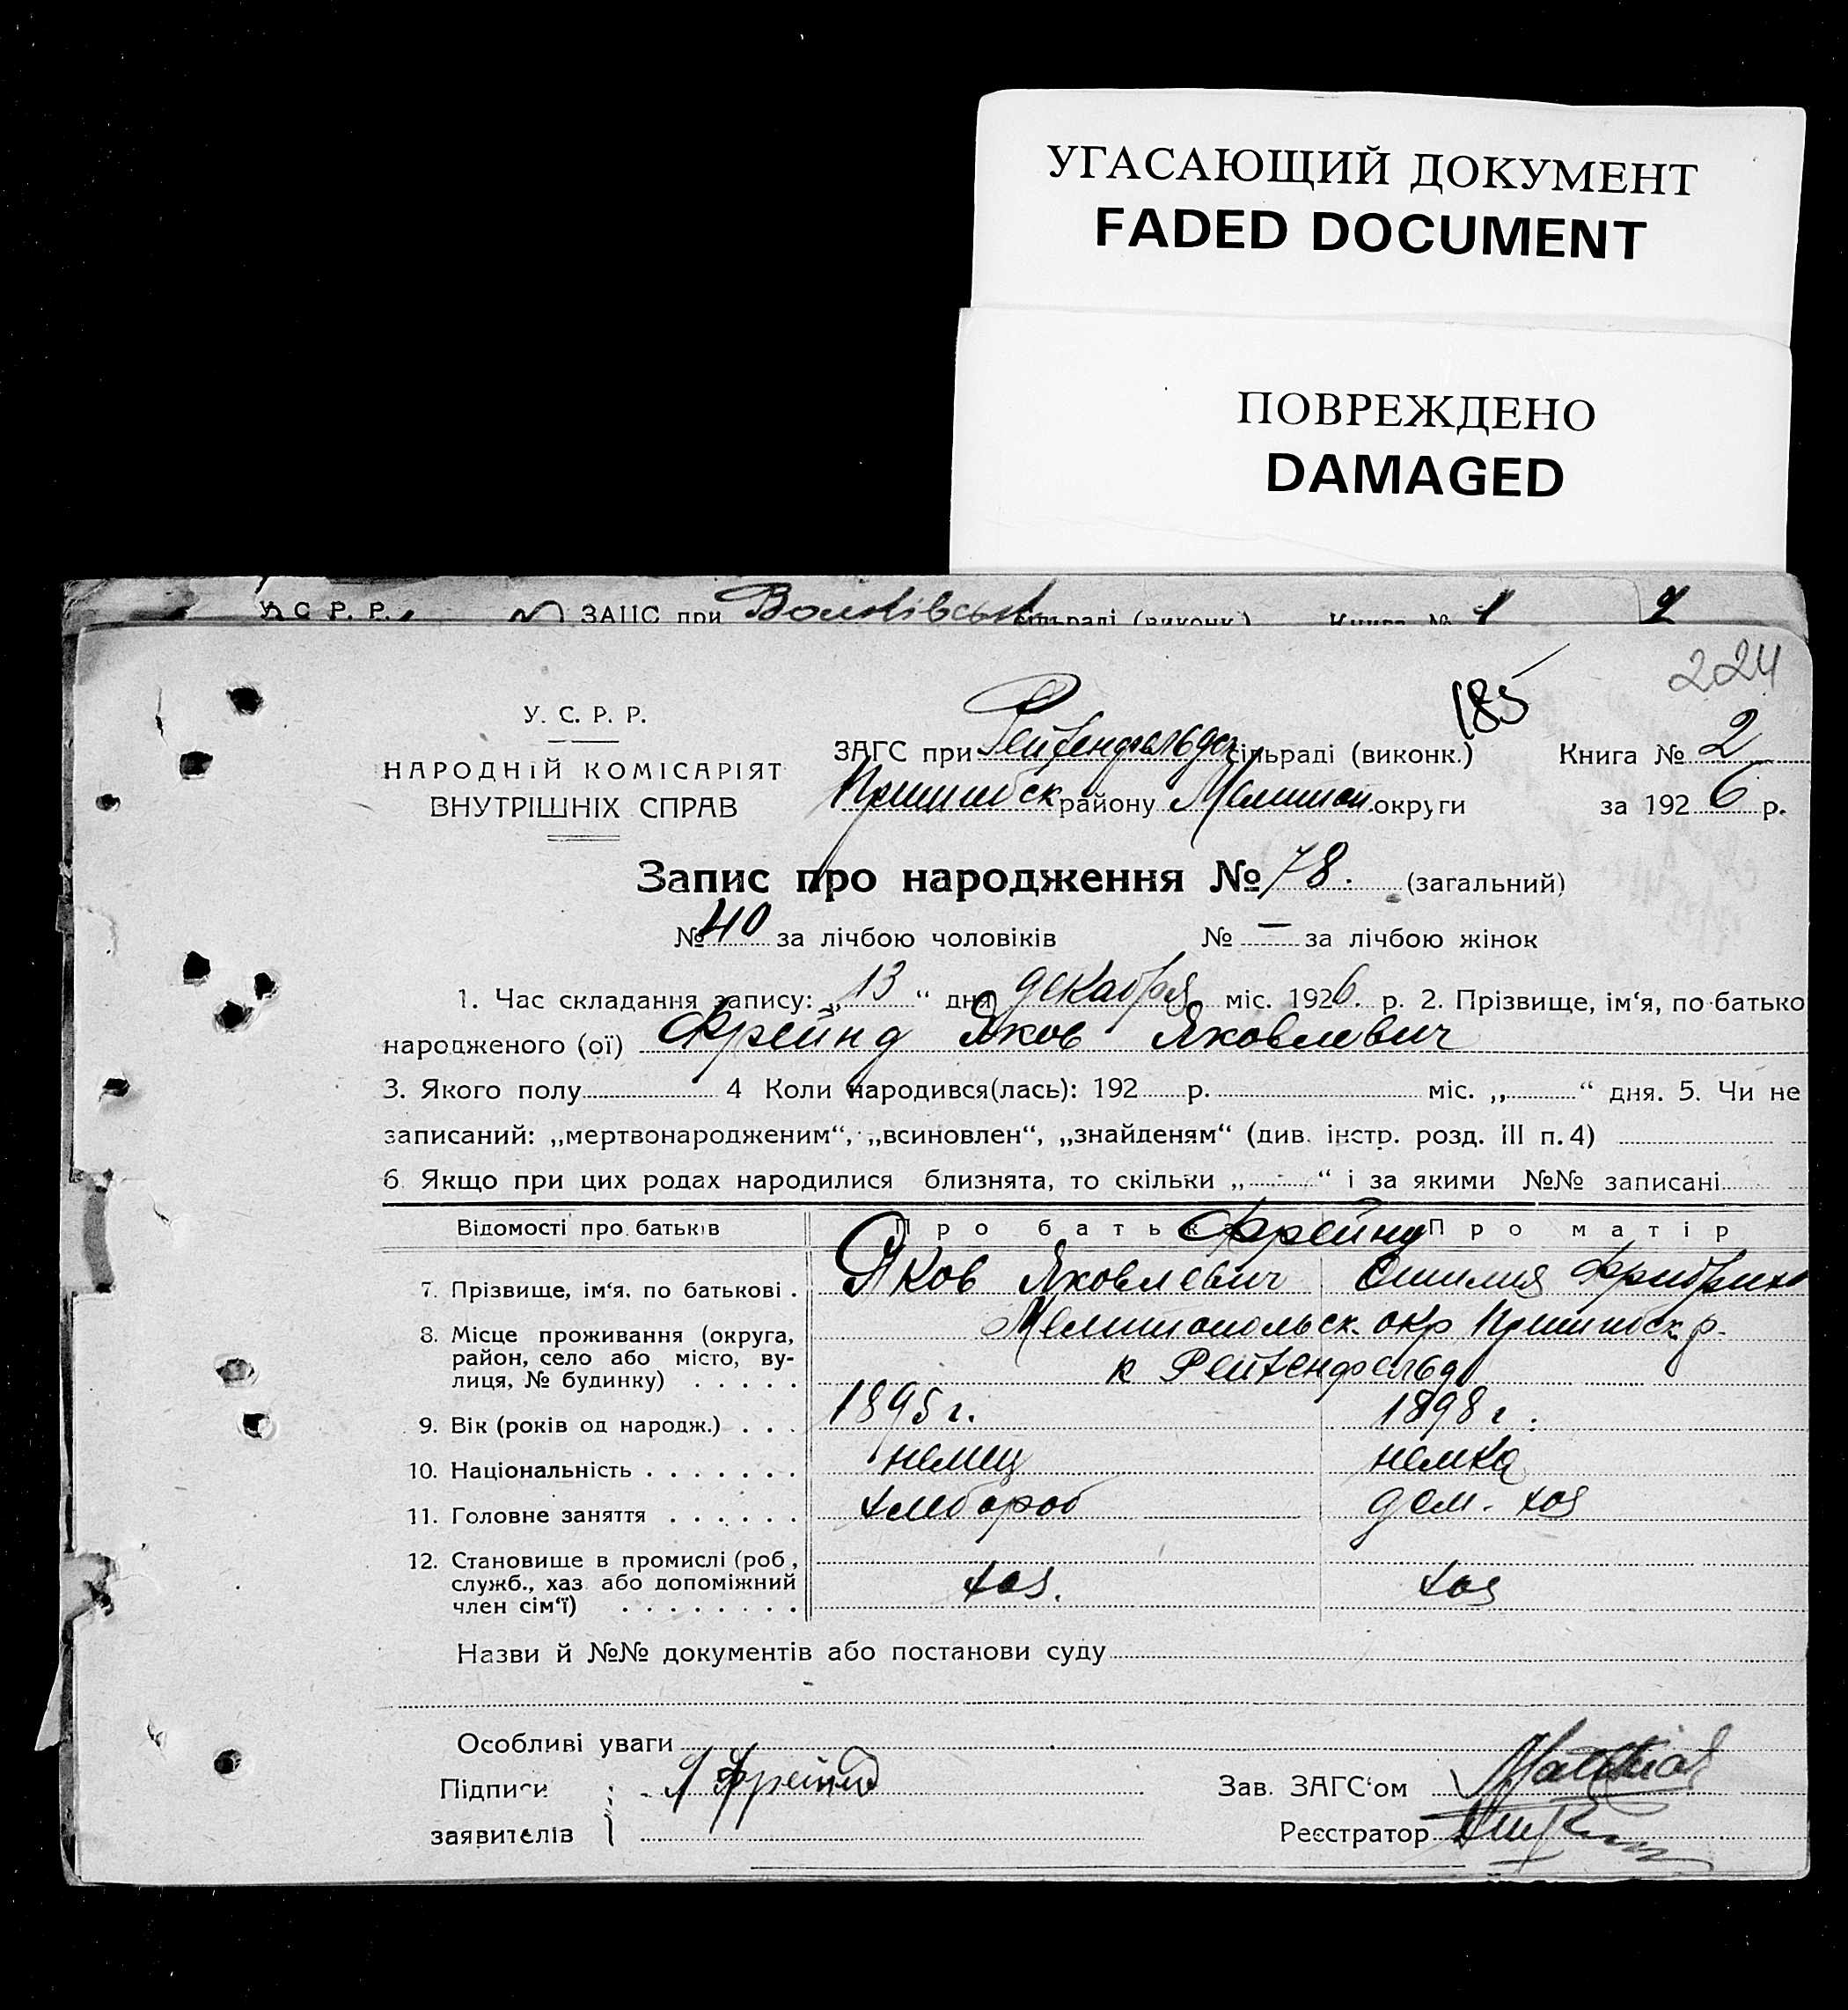 УГАСАЮЩИЙ ДОКУМЕНТ
FADED DOCUMENT
ПОВРЕЖДЕНО
DAMAGED
У. С. Р. Р. ЗАГС при сільраді (виконк.) Книга № 1 2
224
185
У. С. Р. Р.
НАРОДНІЙ КОМІСАРІЯТ
ВНУТРІШНІХ СПРАВ
ЗАГС при Рейхенфельдск сільраді (виконк.) Книга № 2
Пришибск району Мелитоп. округи за 1926 р.
Запис про народження № 78. (загальний)
№ 40 за лічбою чоловіків № — за лічбою жінок
1. Час складання запису: „13“ дня декабря міс. 1926. р. 2. Прізвище, ім‘я, по батько
народженого (ої) Фрейнд Яков Яковлевич
3. Якого полу 4 Коли народився(лась): 192 р. міс. „ “ дня. 5. Чи не
записаний: „мертвонародженим“, „всиновлен“, „знайденям“ (див. інстр. розд. III п. 4)
6. Якщо при цих родах народилися близнята, то скільки „ “ і за якими №№ записані
Відомості про батьків Про батька Фрейнд Про матір
7. Прізвище, ім‘я. по батькові . Яков Яковлевич
8. Місце проживання (округа, Мелитопольск. окр Пришибск р.
район, село або місто, ву-
лиця, № будинку) . . . . . к Рейхенфельд
9. Вік (років од народж.) . . . 1895 г. 1898 г.
10. Національність . . . . . . . немец немка
11. Головне заняття . . . . . . хлебороб дом. хоз
12. Становище в промислі (роб,
служб., хаз або допоміжний хоз. хоз
член сім‘ї) . . . . . . . .
Назви й №№ документів або постанови суду
Особливі уваги
Підписи Я Фрейнд Зав. ЗАГС‘ом
заявителів Реєстратор